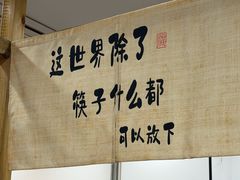 这世界除了
筷子什么都
可以放下